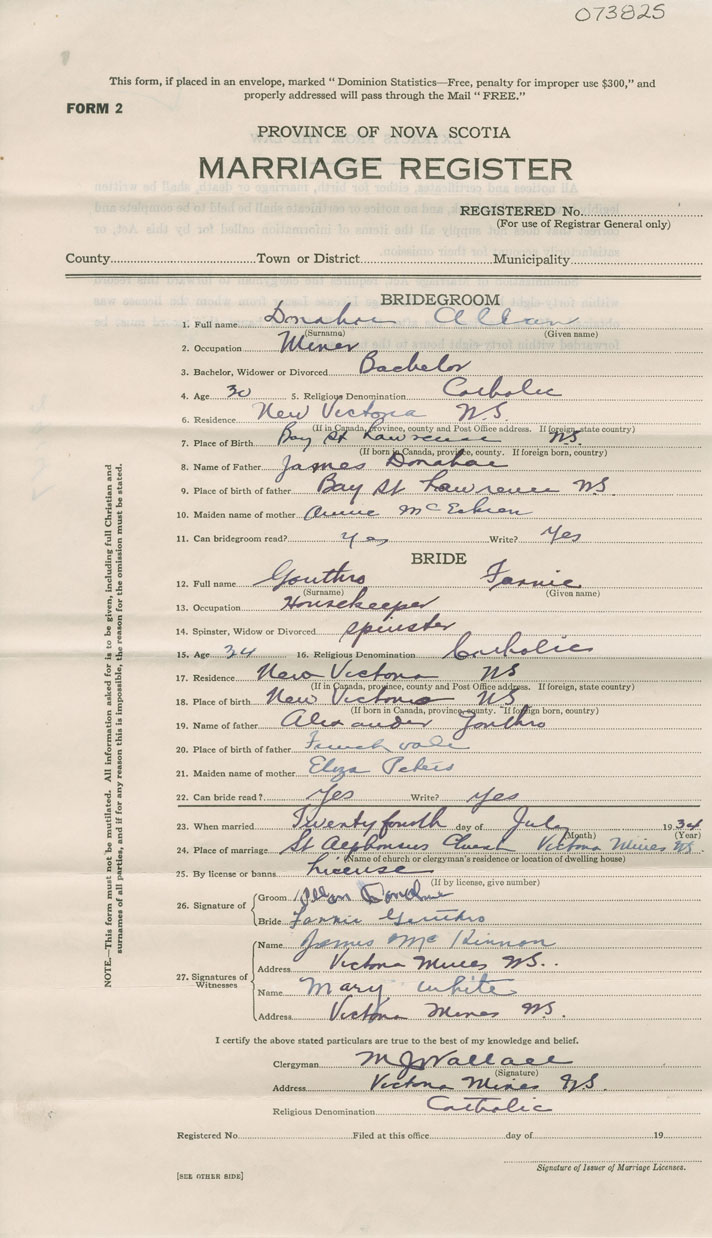 073825
This form, if placed in an envelope, marked “ Dominion Statistics—Free, penalty for improper use $300,” and
properly addressed will pass through the Mail “ FREE.”
FORM 2
PROVINCE OF NOVA SCOTIA
MARRIAGE REGISTER
REGISTERED No.
(For use of Registrar General only)
County Town or District Municipality
BRIDEGROOM
1. Full name Donahoe Allan
(Surname) (Given name)
2. Occupation Miner
3. Bachelor, Widower or Divorced Bachelor
4. Age 30 5. Religious Denomination Catholic
6. Residence New Victoria N.S.
(If in Canada, province, county and Post Office address. If foreign, state country)
7. Place of Birth Bay St Lawrence N.S.
(If born in Canada, province, county. If foreign born, country)
8. Name of Father James Donahoe
9. Place of birth of father Bay St Lawrence N.S.
10. Maiden name of mother Annie
11. Can bridegroom read? Yes Write? Yes
BRIDE
12. Full name Gouthro Fannie
(Surname) (Given name)
13. Occupation Housekeeper
14. Spinster, Widow or Divorced spinster
15. Age 34 16. Religious Denomination Catholic
17. Residence New Victoria NS
(If in Canada, province, county and Post Office address. If foreign, state country)
18. Place of birth New Victoria NS
(If born in Canada, province, county. If foreign born, country)
19. Name of father Alexander Gouthro
20. Place of birth of father French vale
21. Maiden name of mother Eliza Peters
22. Can bride read? Yes Write? Yes
23. When married Twenty fourth day of July 1934
(Month) (Year)
24. Place of marriage St Alphonsus Church Victoria Mines N.S.
(Name of church or clergyman's residence or location of dwelling house)
25. By license or banns License
(If by license, give number)
26. Signature of Groom Allan Donahoe
Bride Fannie Gouthro
27. Signatures of Witnesses Name James McKinnon
Address Victoria Mines N.S.
Name Mary White
Address Victoria Mines N.S.
I certify the above stated particulars are true to the best of my knowledge and belief.
Clergyman M J Wallace
(Signature)
Address Victoria Mines N.S.
Religious Denomination Catholic
Registered No. Filed at this office day of 19
Signature of Issuer of Marriage Licenses.
[SEE OTHER SIDE]
NOTE.—This form must not be mutilated. All information asked for is to be given, including full Christian and
surnames of all parties, and if for any reason this is impossible, the reason for the omission must be stated.